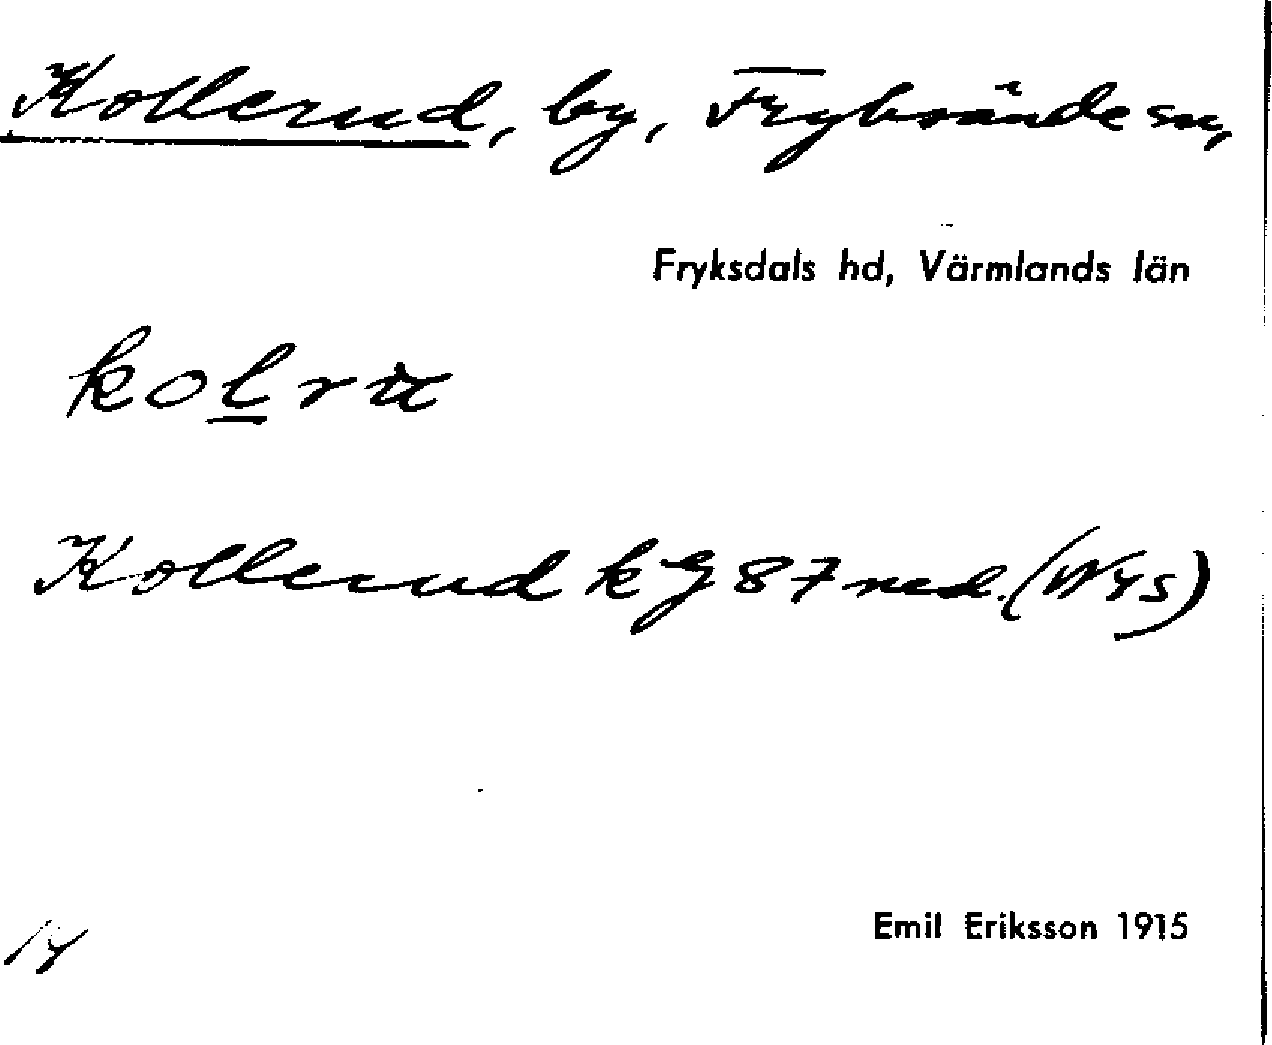 Kollerud, by, Fryksände sn,
Fryksdals hd, Värmlands län
kolru
Kollerud kg 87 ned. (N 4s)
Emil Eriksson 1915